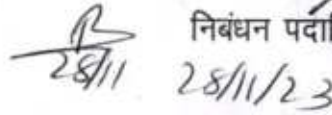 निबंधन पदाि
28/11 28/11/23